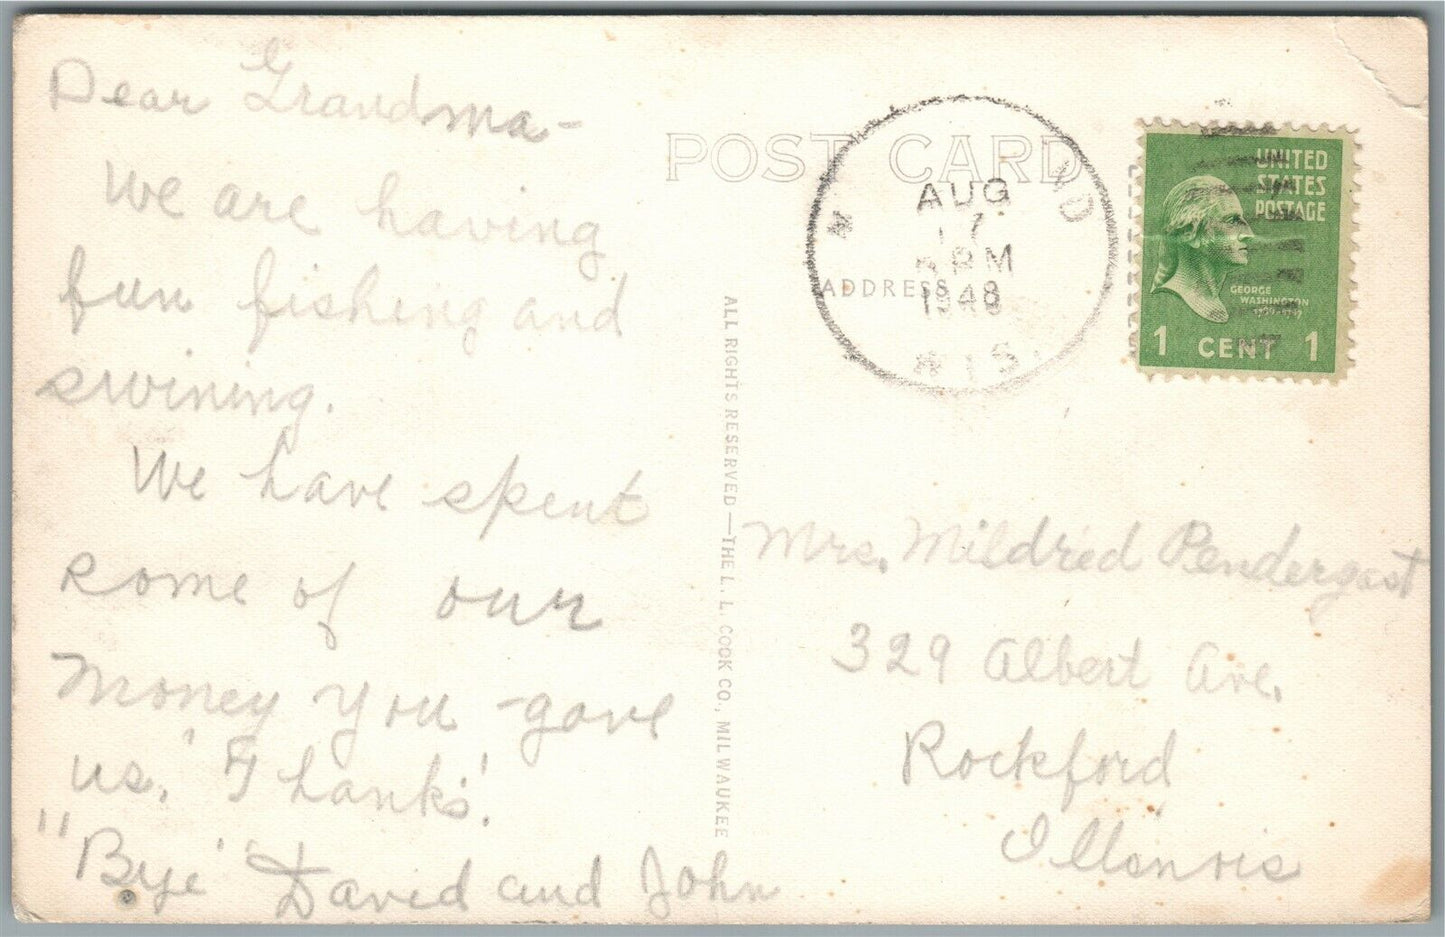 Dear Grandma-
We are having
fun fishing and
swining.
We have spent
some of our
money you gave
us. 'Thanks'.
"Bye' David and John
POST CARD
ADDRESS
ALL RIGHTS RESERVED—THE L. L. COOK CO., MILWAUKEE
AUG
17
PM
1948
WIS.
UNITED
STATES
POSTAGE
GEORGE
WASHINGTON
1 CENT 1
Mrs. Mildred Pendergast
329 Albert Ave.
Rockford
Illinois